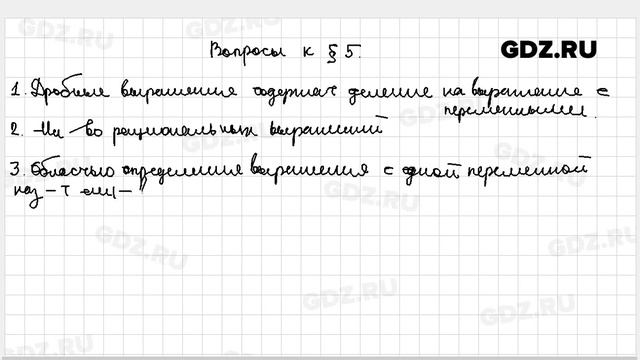 Вопросы к § 5.
GDZ.RU
1. Дробные выражения содержат деление на выражение с
переменными.
2. Мн-во рациональных выражений
3. Областью определения выражения с одной переменной
наз-т
GDZ.RU
GDZ.RU
GDZ.RU
GDZ.RU
GDZ.RU
GDZ.RU
GDZ.RU
GDZ.RU
GDZ.RU